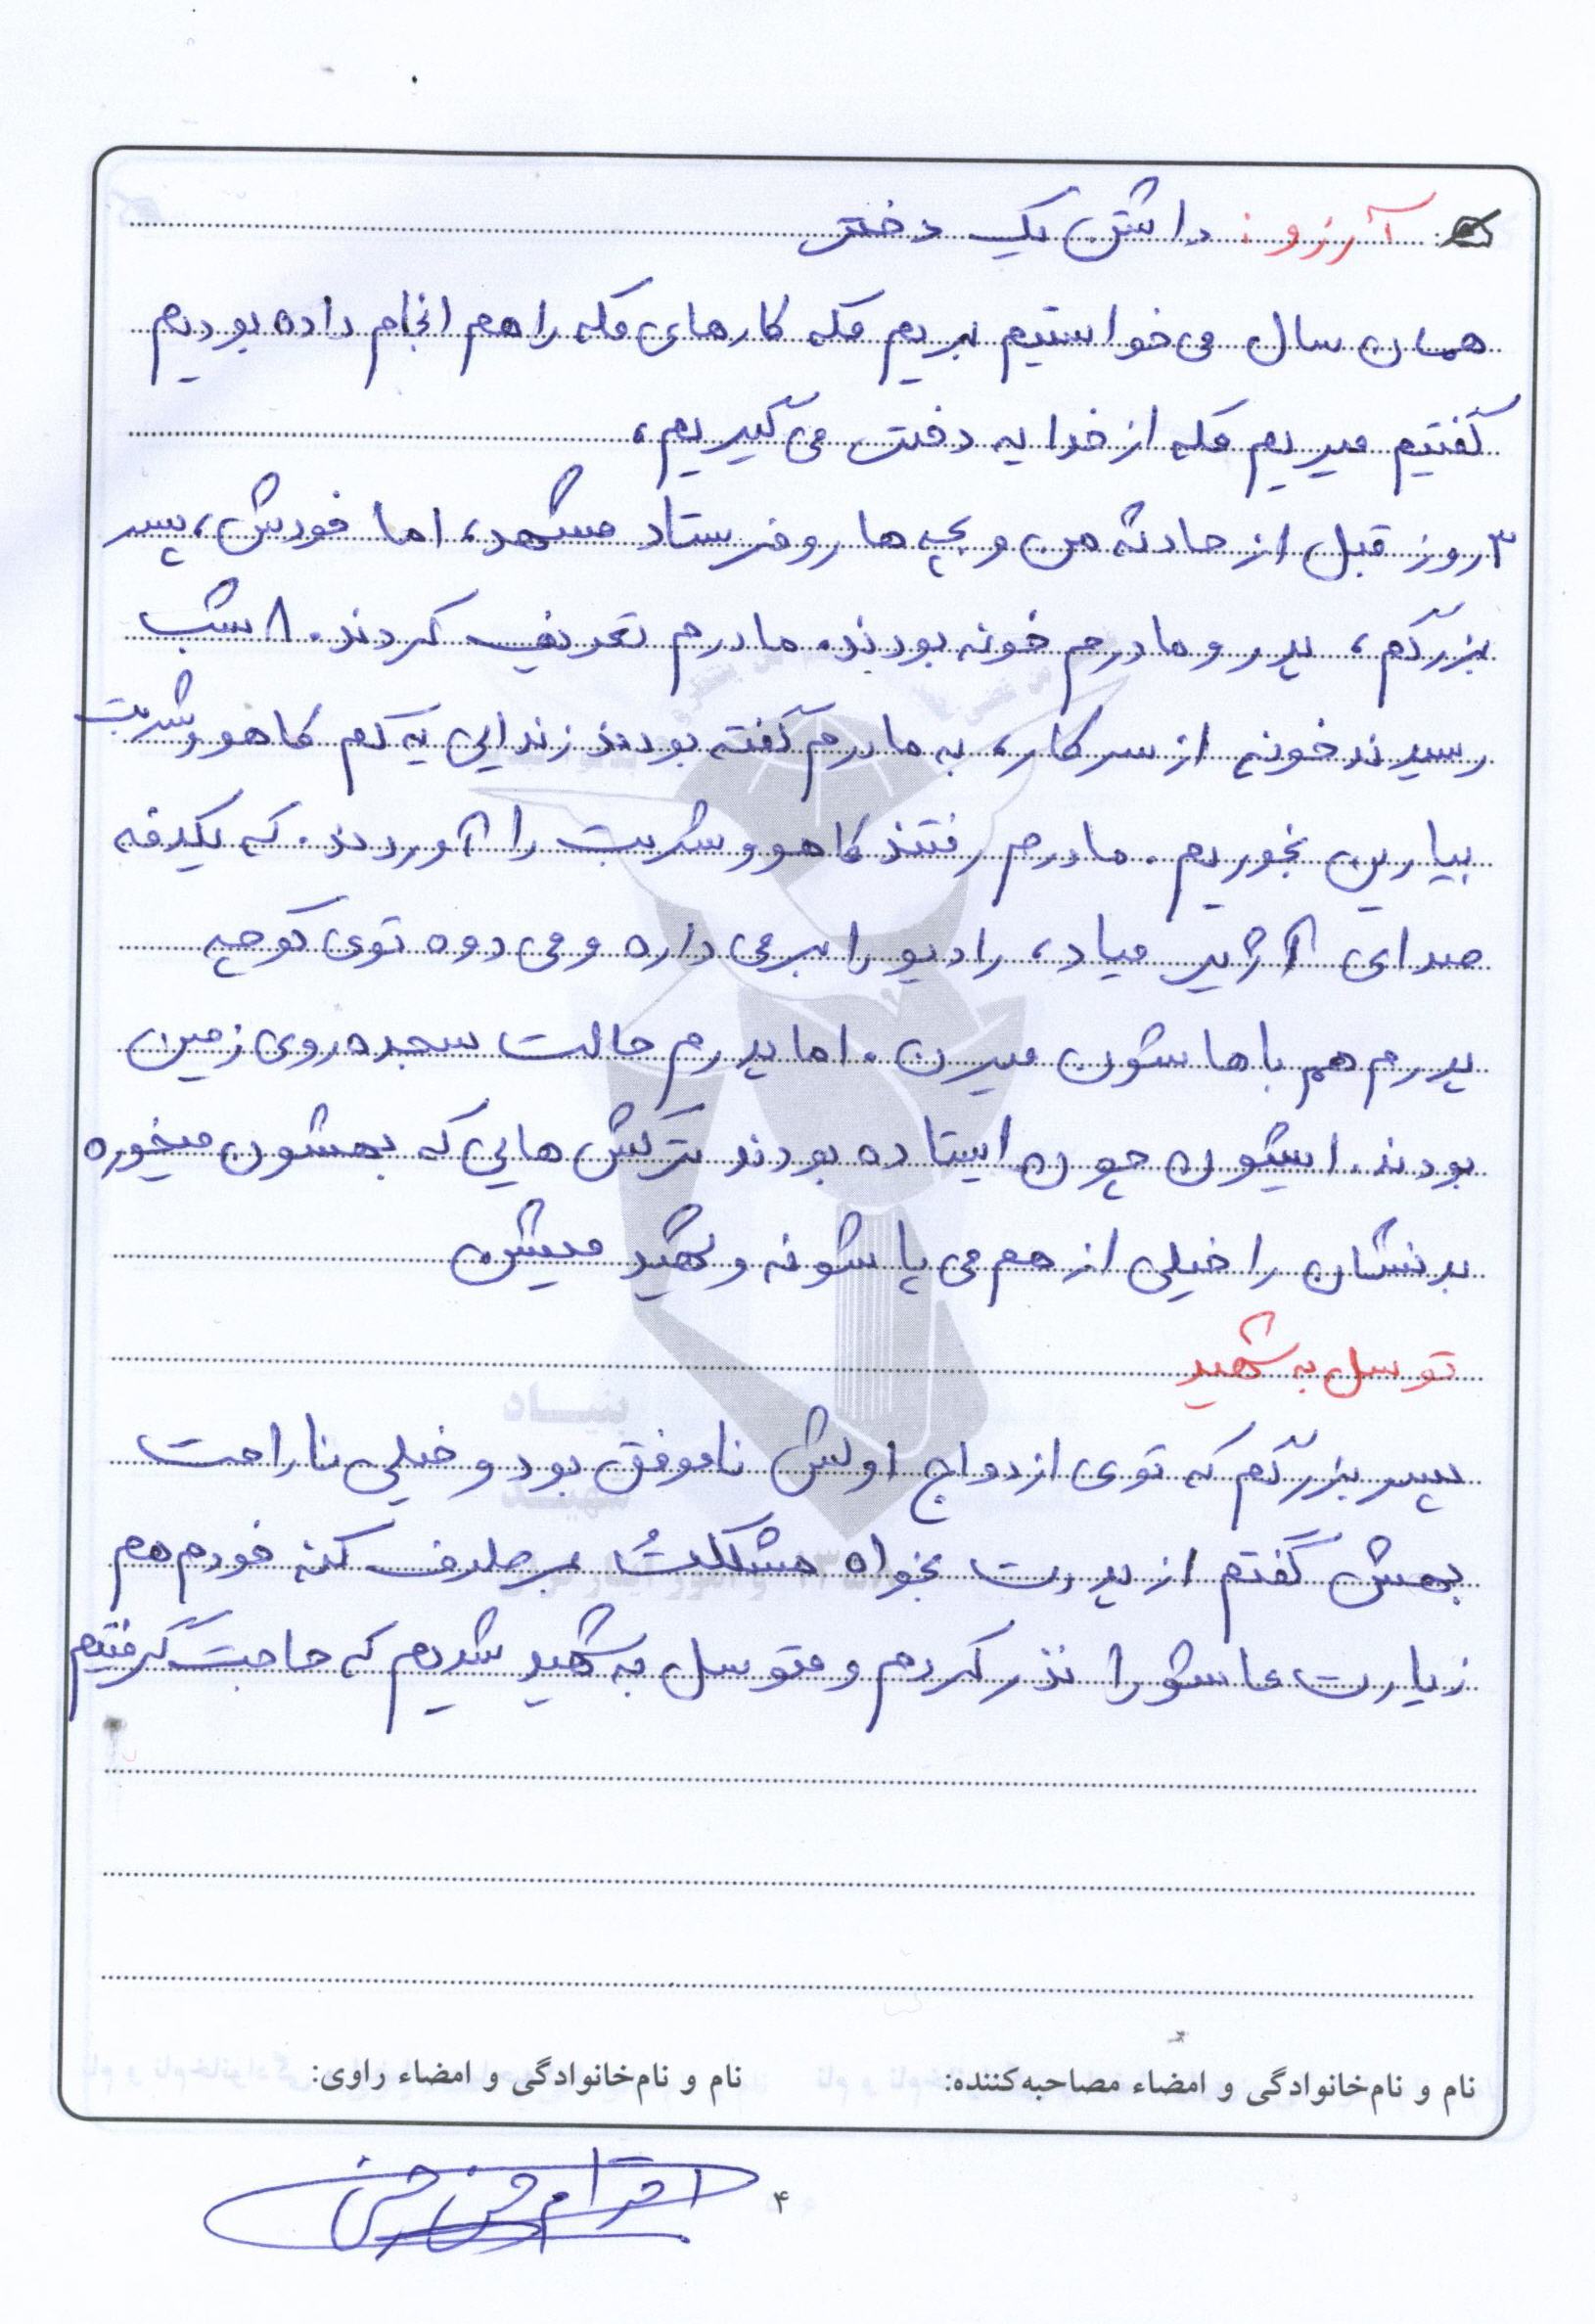 آرزو: داشتن یک دختر
همان سال می‌خواستیم بریم مکه کارهای مکه را هم انجام داده بودیم
گفتیم میریم مکه از خدا یه دختر می‌گیریم،
۳ روز قبل از حادثه من و بچه‌ها رو فرستاد مشهد، اما خودش، پسر
بزرگم، پدر و مادرم خونه بودند. مادرم تعریف کردند. ۸ شب
رسیدند خونه از سر کار، به مادرم گفته بودند زندایی یه کم کاهو و شربت
بیارین بخوریم. مادرم رفتند کاهو و شربت را آوردند. که یکدفه
صدای آژیر میاد، رادیو را برمی داره و می دوه توی کوچه
پدرم هم باهاشون میرن. اما پدرم حالت سجده روی زمین
بودند. ایشون چون ایستاده بودند ترکش هایی که بهشون میخوره
بدنشان را خیلی از هم می پاشونه و شهید میشن
توسل به شهید
پسر بزرگم که توی ازدواج اولش ناموفق بود و خیلی ناراحت
بهش گفتم از پدرت بخواه مشکلتُ برطرف کنه خودم هم
زیارت عاشورا نذر کردم و متوسل به شهید شدیم که حاجت گرفتیم
نام و نام‌خانوادگی و امضاء مصاحبه‌کننده: نام و نام‌خانوادگی و امضاء راوی:
۴